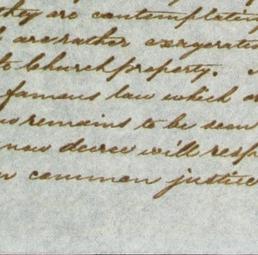 they are contemplating
are rather exagerati
to Church property.
famous law which
remains to be seen
new decree will resp
common justice